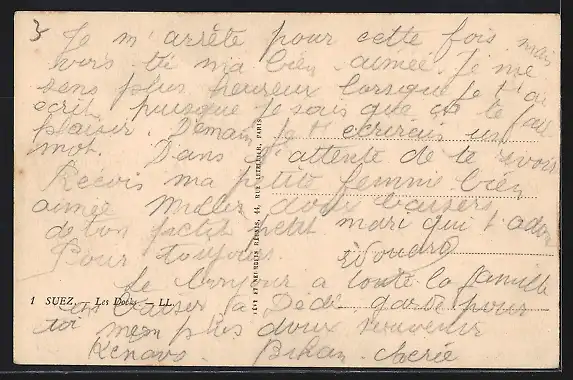 3
Je m'arrête pour cette fois mais
vers toi ma bien-aimée. Je me
sens plus heureux lorsque je t'ai
écrit, puisque je sais que ça te fait
plaisir. Demain je t'écrirais un
mot. Dans l'attente de te revoir
Recois ma petite femme bien
aimée Milles doux baisers
de ton petit mari qui t'adore
Pour toujours. Edouard
Le bonjour a toute la famille
un baiser a Dédé, garde pour
toi mon plus doux souvenir
Kenavo. Bihan. cherie
1 SUEZ. — Les Docks. — LL.
LÉVY ET NEURDEIN RÉUNIS, 44, RUE LETELLIER, PARIS